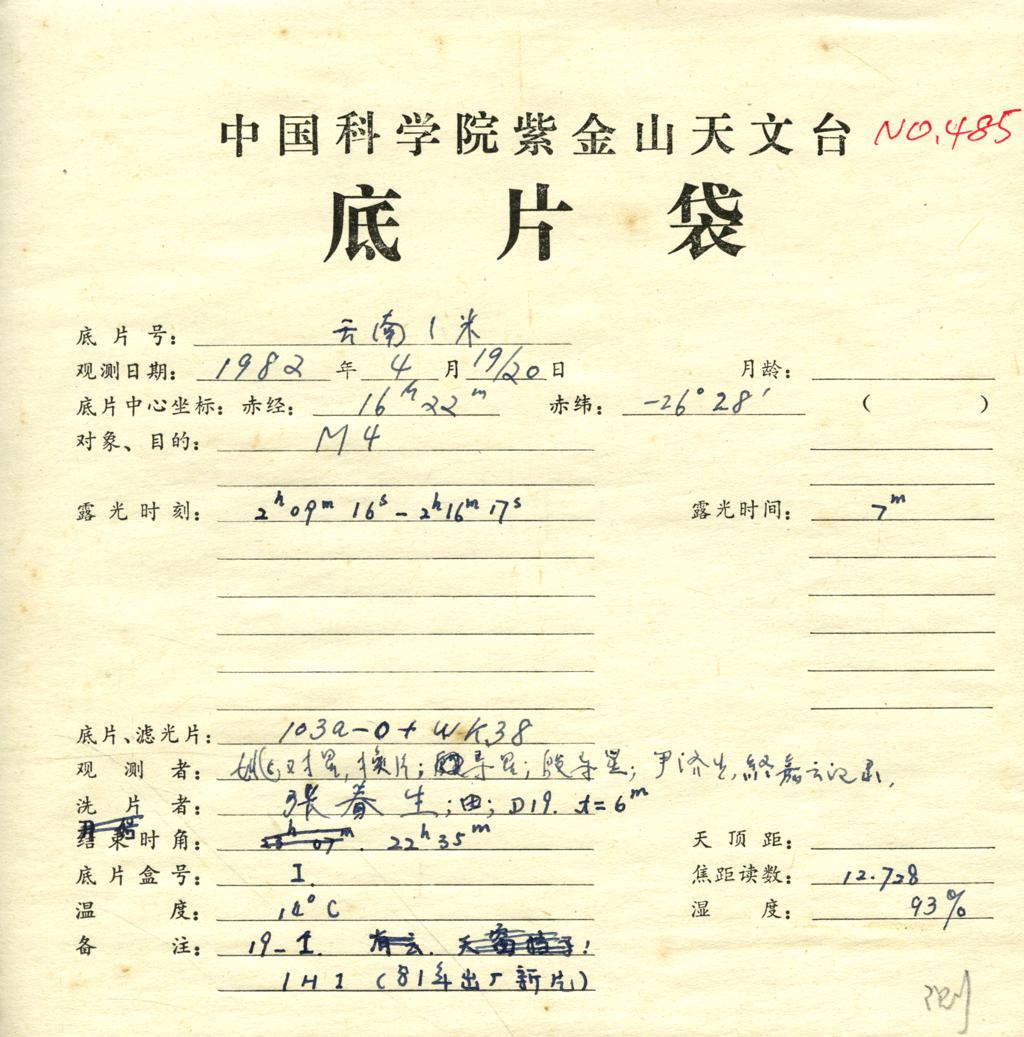 中国科学院紫金山天文台 NO.485
底片袋
底片号: 云南1米
观测日期: 1982年4月19/20日 月龄:
底片中心坐标: 赤经: 16h22m 赤纬: -26°28′ ( )
对象、目的: M4
露光时刻: 2h09m16s-2h16m17s 露光时间: 7m
底片、滤光片: 103a-O+WK38
观测者: 对星,换片; 导星; 导星; 尹济生, 嘉云记录,
洗片者: 张春生; D19. t=6m
结束时角: 23h07m. 22h35m 天顶距:
底片盒号: I. 焦距读数: 12.728
温度: 14°C 湿度: 93%
备注: 19-I. 有云. 天!
1HI(81年出厂新片)